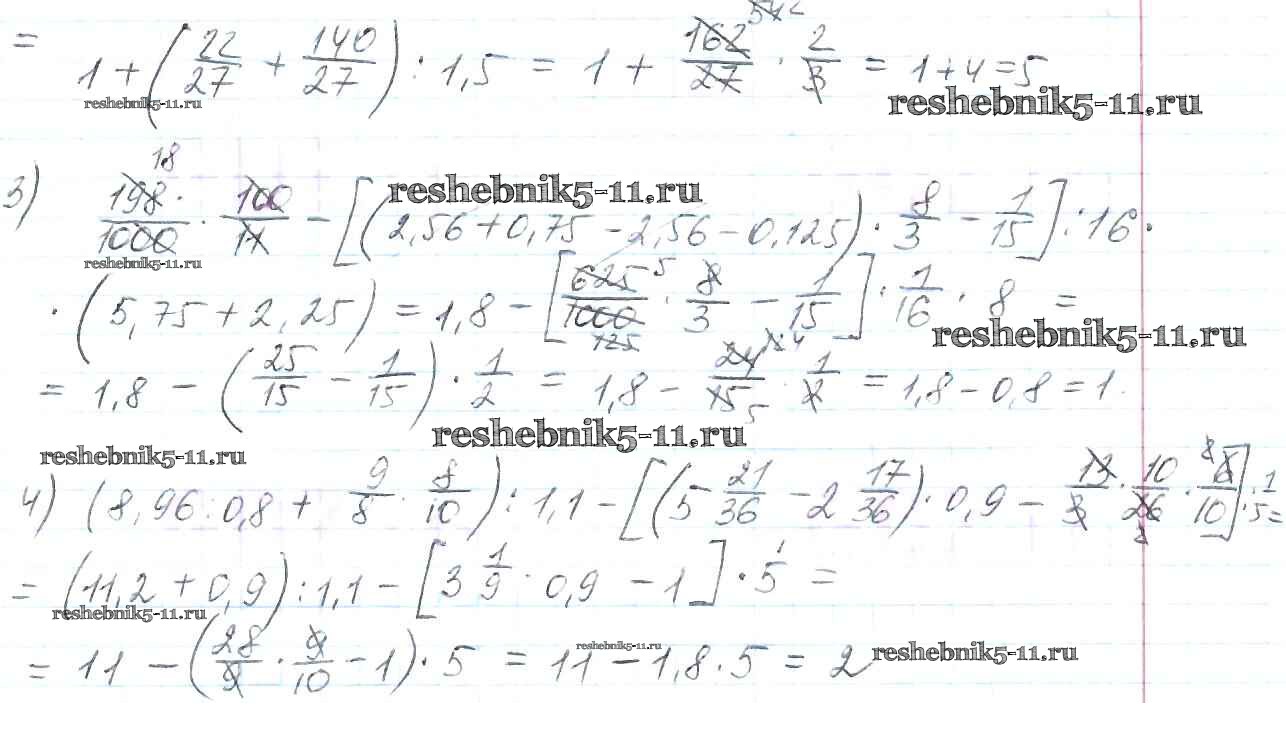 = 1 + (22/27 + 140/27) : 1,5 = 1 + 162/27 · 2/3 = 1 + 4 = 5
reshebnik5-11.ru reshebnik5-11.ru
3) 198/1000 · 100/11 − [(2,56 + 0,75 − 2,56 − 0,125) · 8/3 − 1/15] : 16 ·
reshebnik5-11.ru
reshebnik5-11.ru
· (5,75 + 2,25) = 1,8 − [625/1000 · 8/3 − 1/15] · 1/16 · 8 =
reshebnik5-11.ru
= 1,8 − (25/15 − 1/15) · 1/2 = 1,8 − 24/15 · 1/2 = 1,8 − 0,8 = 1.
reshebnik5-11.ru
reshebnik5-11.ru
4) (8,96 : 0,8 + 9/8 · 8/10) : 1,1 − [(5 21/36 − 2 17/36) · 0,9 − 13/3 · 10/26 · 6/10] : 1/5 =
= (11,2 + 0,9) : 1,1 − [3 1/9 · 0,9 − 1] · 5 =
reshebnik5-11.ru
= 11 − (28/9 · 9/10 − 1) · 5 = 11 − 1,8 · 5 = 2
reshebnik5-11.ru
reshebnik5-11.ru